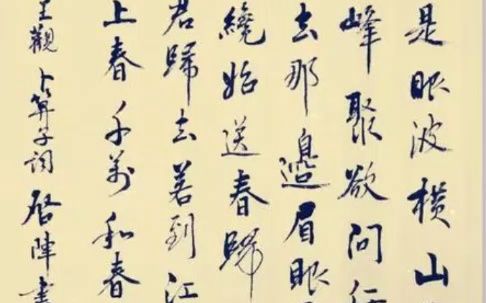 是眼波横山
峰聚欲問行
去那邊眉眼
纔始送春歸
君歸去若到江
上春千萬和春
王觀卜算子詞啓陣書